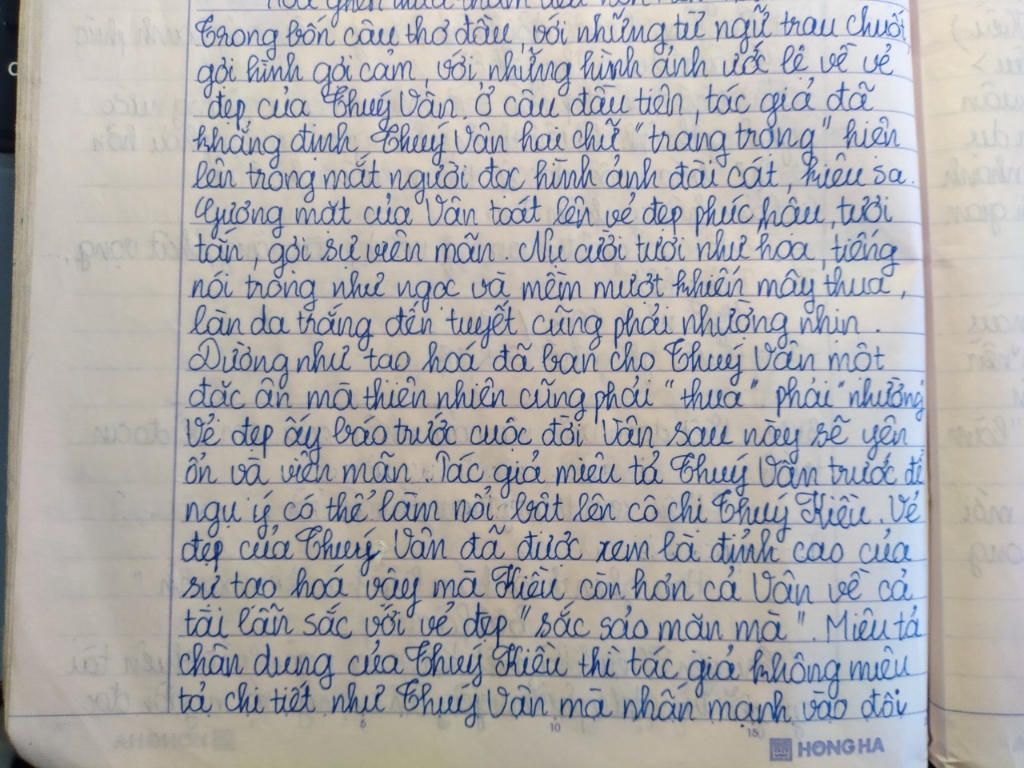 Trong bốn câu thơ đầu, với những từ ngữ trau chuốt,
gợi hình gợi cảm, với những hình ảnh ước lệ về vẻ
đẹp của Thuý Vân. Ở câu đầu tiên, tác giả đã
khẳng định Thuý Vân hai chữ "trang trọng" hiện
lên trong mắt người đọc hình ảnh đài cát, kiêu sa.
Gương mặt của Vân toát lên vẻ đẹp phúc hậu, tươi
tắn, gợi sự viên mãn. Nụ cười tươi như hoa, tiếng
nói trong như ngọc và mềm mượt khiến mây thua,
làn da trắng đến tuyết cũng phải nhường nhịn.
Dường như tạo hoá đã ban cho Thuý Vân một
đặc ân mà thiên nhiên cũng phải "thua" phải "nhường"
Vẻ đẹp ấy báo trước cuộc đời Vân sau này sẽ yên
ổn và viên mãn. Tác giả miêu tả Thuý Vân trước để
ngụ ý có thể làm nổi bật lên cô chị Thuý Kiều. Vẻ
đẹp của Thuý Vân đã được xem là đỉnh cao của
sự tạo hoá vậy mà Kiều còn hơn cả Vân về cả
tài lẫn sắc với vẻ đẹp "sắc sảo mặn mà". Miêu tả
chân dung của Thuý Kiều thì tác giả không miêu
tả chi tiết như Thuý Vân mà nhấn mạnh vào đôi
5 10 15
HONG HA